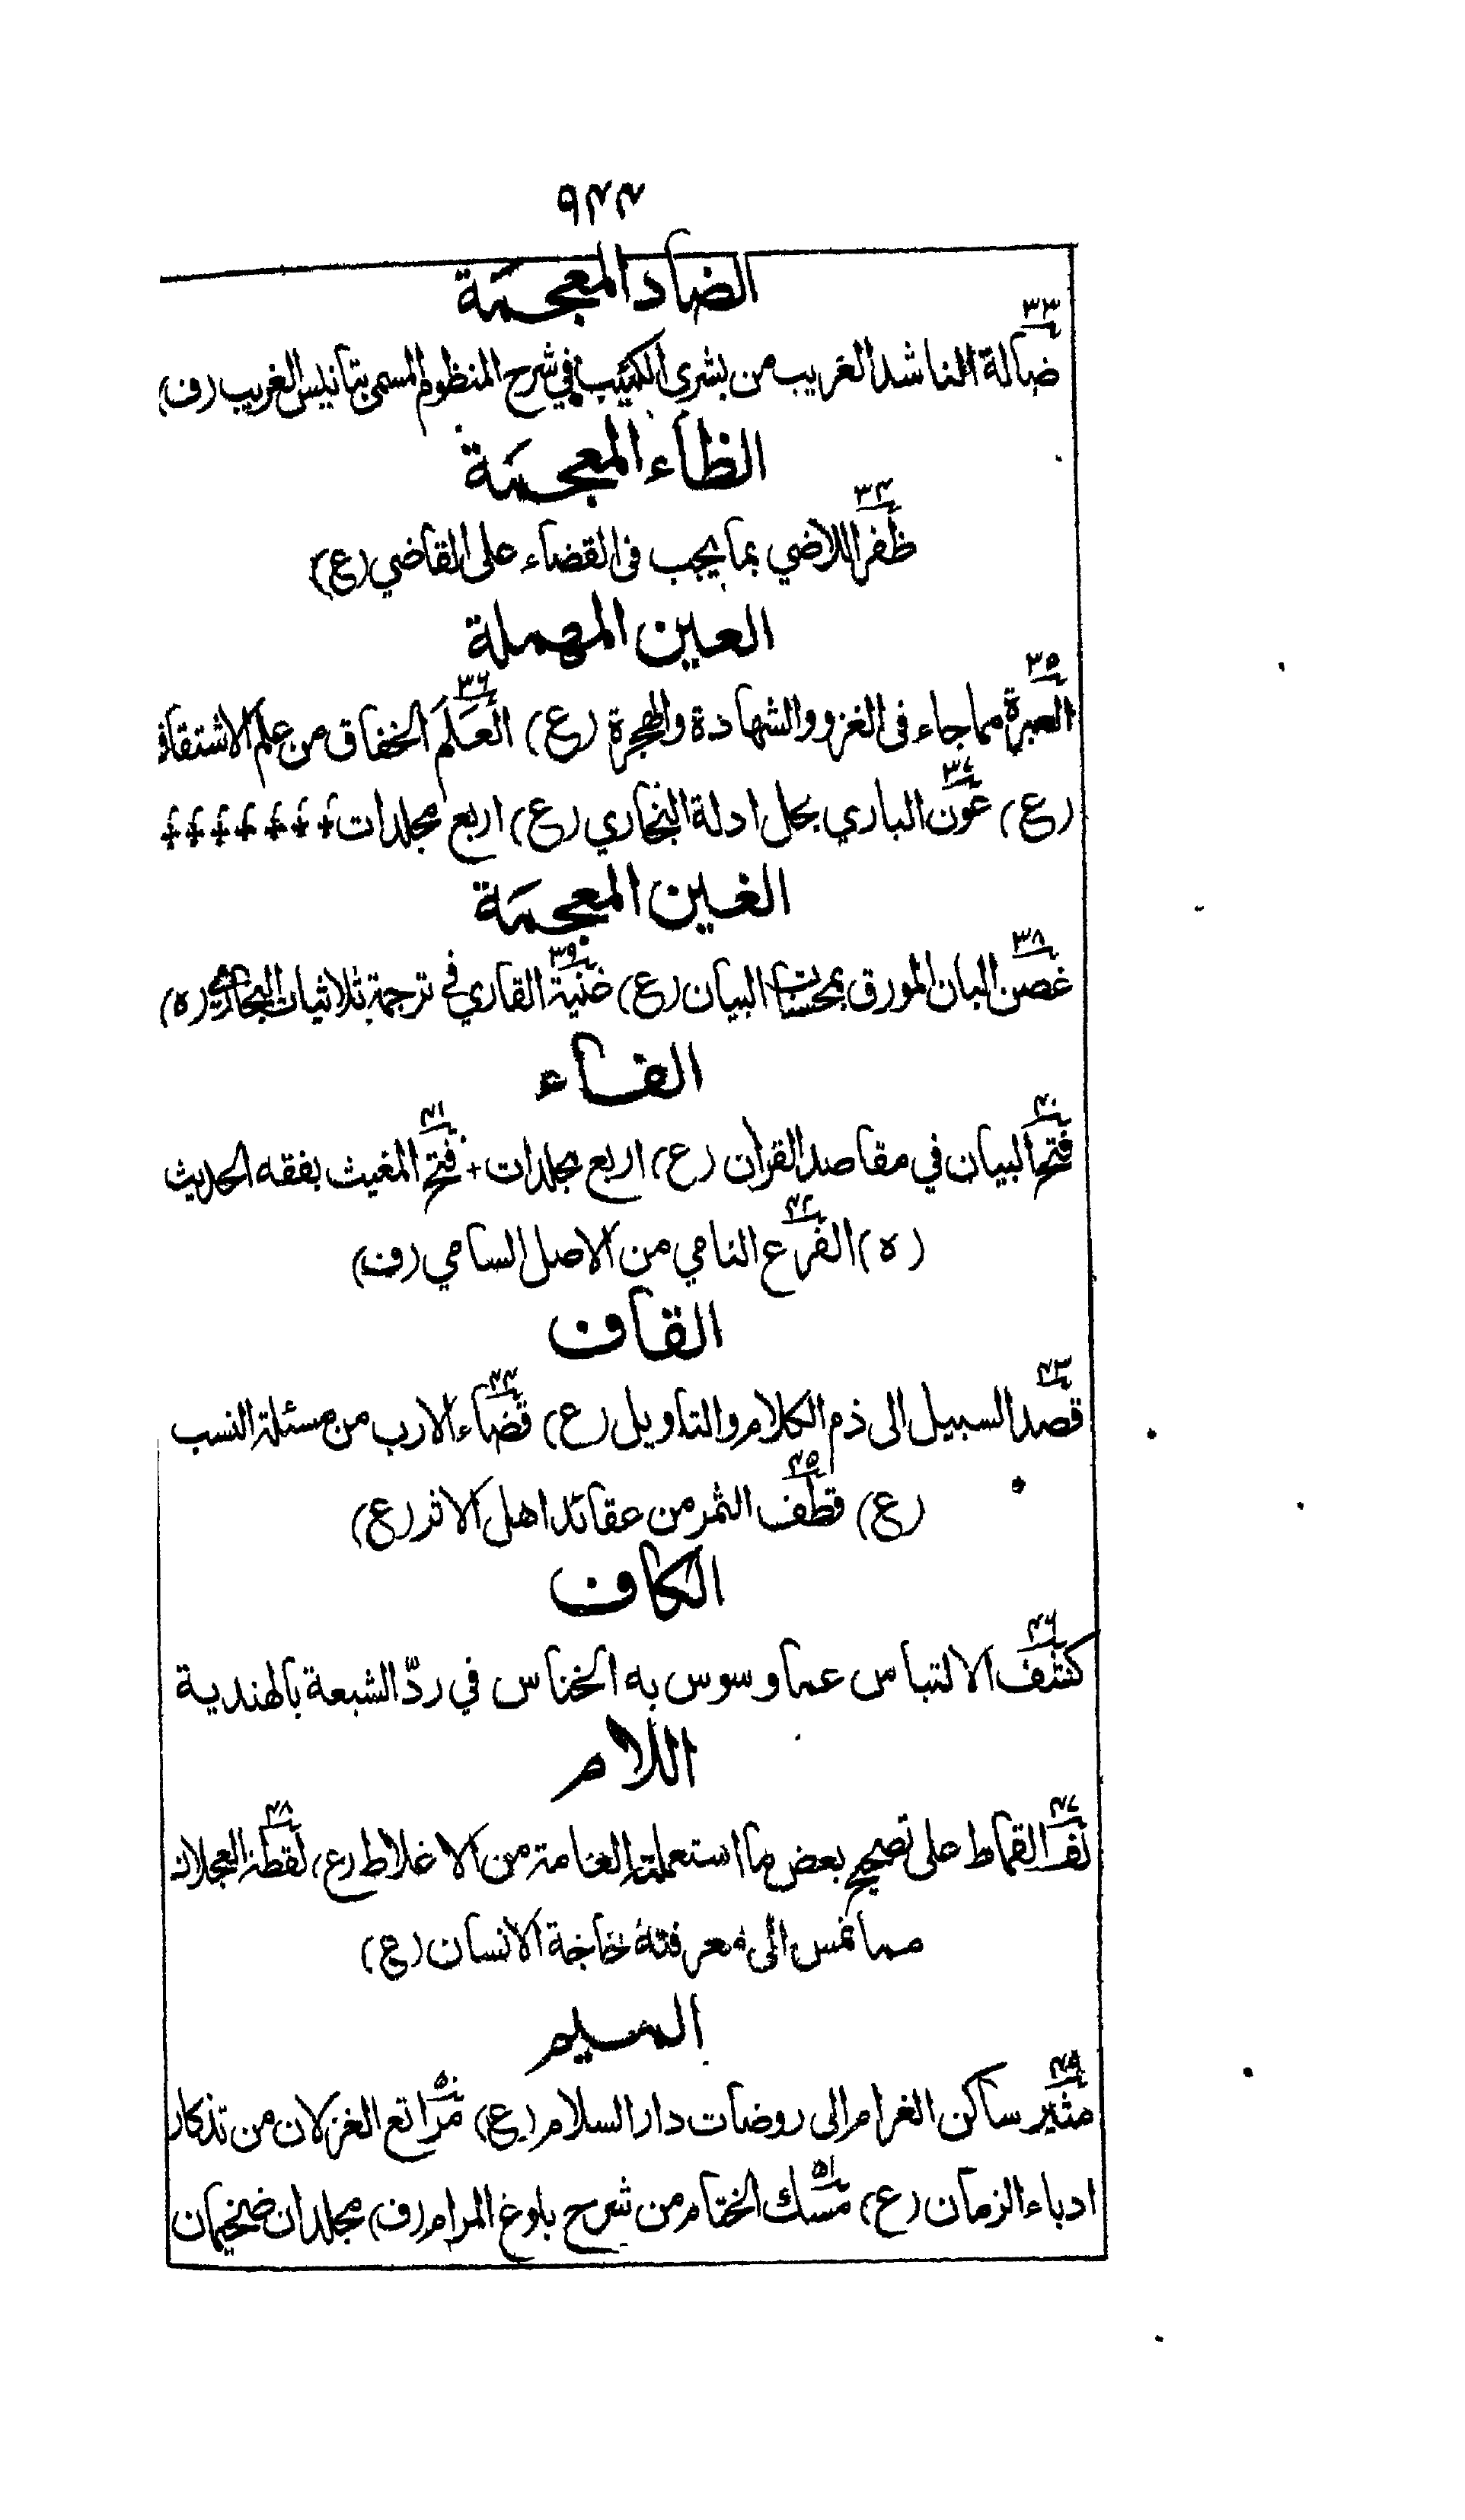 ٩٤٤
الضاد المعجمة
٣٣
ضالة الناشد الغريب من بشرى الكئيب في شرح المنظوم المسمى بتانيس الغريب (ف)
الظاء المعجمة
٣٤
ظفر اللاضي بما يجب فى القضاء على القاضي (ع)
العين المهملة
٣٥ ٣٦
العبرة مما جاء فى الغزو والشهادة والهجرة (ع) العَلَم الخفاق من علم الاشتقاق
٣٧
(ع) عون الباري بحل ادلة البخاري (ع) اربع مجلدات
الغين المعجمة
٣٨ ٣٩
غصن البان المورق بمحسنات البيان (ع) غنية القاري في ترجمة ثلاثيات البخاري (ه)
الفاء
٤٠ ٤١
فتح البيان في مقاصد القران (ع) اربع مجلدات + فتح المغيث بفقه الحديث
٤٢
(ه) الفرع النامي من الاصل السامي (ف)
القاف
٤٣ ٤٤
قصد السبيل الى ذم الكلام والتاويل (ع) قضاء الارب من مسئلة النسب
٤٥
(ع) قطف الثمر من عقائد اهل الاثر (ع)
الكاف
٤٦
كشف الالتباس عما وسوس به الخناس في ردّ الشيعة بالهندية
اللام
٤٧ ٤٨
لف القماط على تصحيح بعض ما استعملته العامة من الاغلاط (ع) لقطة العجلان
مما تمس الى معرفته حاجة الانسان (ع)
الميم
٤٩ ٥٠
مثير ساكن الغرام الى روضات دار السلام (ع) مراتع الغزلان من تذكار
٥١
ادباء الزمان (ع) مسك الختام من شرح بلوغ المرام (ف) مجلدان ضخيمان